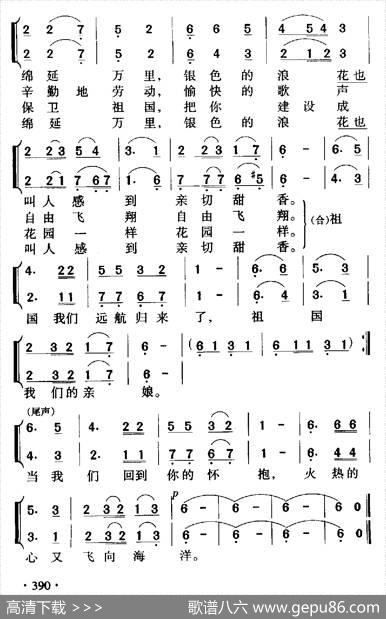 2 2 7 5 2 6 6 5 4 5 4 3
2 2 7 5 2 6 6 5 2 1 2 3
绵延 万里，银色的浪 花也
辛勤地 劳动，愉快的歌 声
保卫 祖国，把你 建设成
绵延 万里，银色的浪 花也
2 2 3 5 4 3· 1 2 2 3 1 7 6 - 6· 5
2 2 1 7 6 7 6 5 7 7 6 #5 6 - 4· 3
叫人感 到 亲切甜 香。
自由飞 翔 自由飞 翔。
花园一 样 花园一 样。
叫人感 到 亲切甜 香。
(合)祖
4· 2 2 5 5 3 2 1 - 6· 6 5· 3
2· 1 1 7 7 6 7 1 - 4· 4 3· 1
国 我们 远航归来 了， 祖 国
2 3 2 1 7 6 - (6 1 3 1 6· 1 1 3 1 6 -)
2 3 2 1 7 6 -
我们的亲 娘。
(尾声)
6· 5 4· 2 2 5 5 3 2 1 - 6· 6 6
4· 3 2· 1 1 7 7 6 7 1 - 4· 4 4
当我 们 回到 你的怀 抱，火热的
5· 3 2 3 2 1 6 - 6 - 6 - 6 0
3· 1 2 3 2 1 6 - 6 - 6 - 6 0
p
心又 飞向海 洋。
· 390 ·
高清下载 >>> 歌谱八六 www.gepu86.com